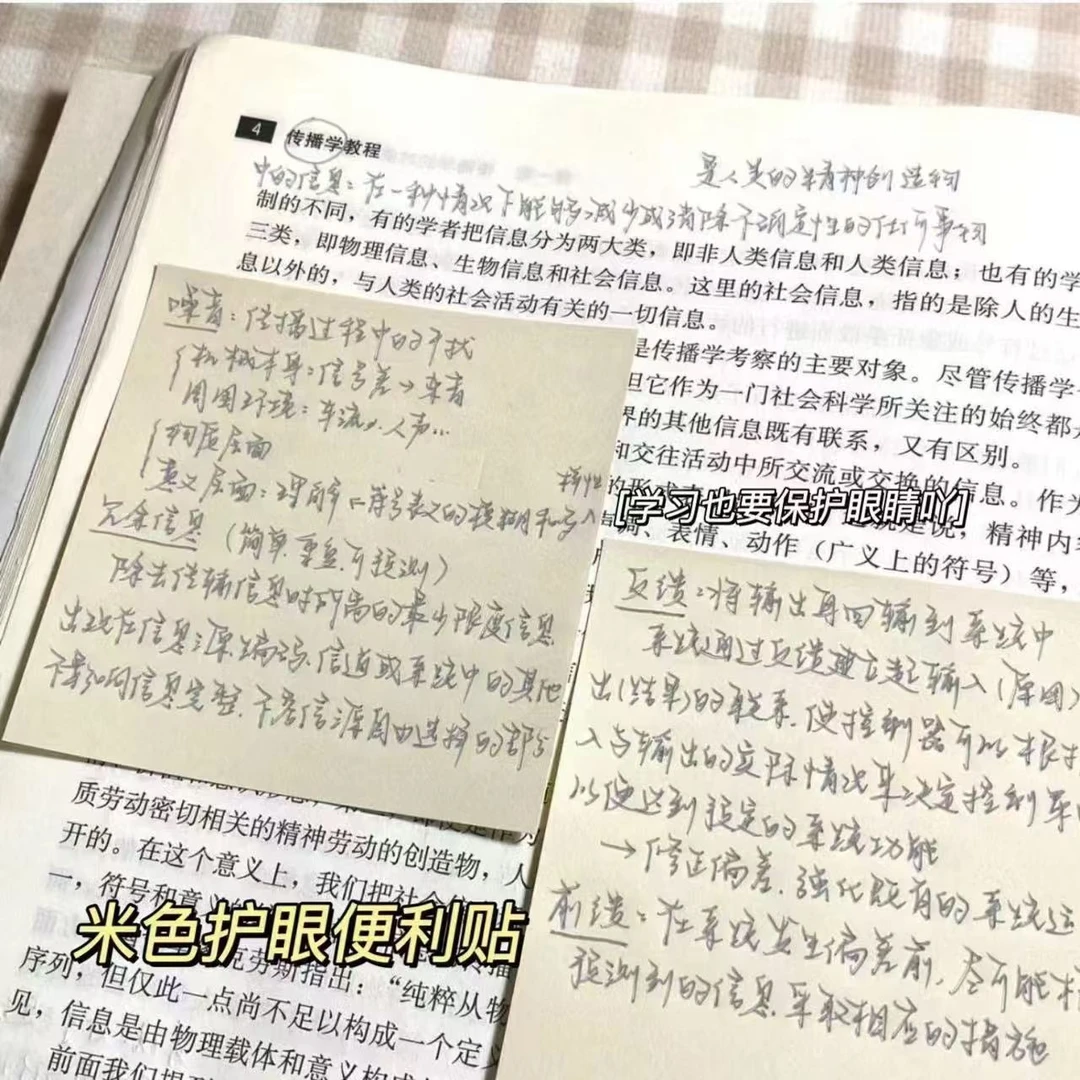 4 传播学教程
是人类的精神创造物
中的信息：在一种情况下能够减少或消除不确定性的任何事物
制的不同，有的学者把信息分为两大类，即非人类信息和人类信息；也有的学
三类，即物理信息、生物信息和社会信息。这里的社会信息，指的是除人的生
息以外的，与人类的社会活动有关的一切信息。
噪音：传播过程中的干扰
机械本身：信号差→杂音
周围环境：车流、人声…
物质层面
意义层面：理解、符号表义的模糊和多
择性
入
冗余信息（简单重复可预测）
除去传输信息时所需的最少限度信息
出现在信息源、编码、信道或系统中的其他
不影响信息完整、不居信源自由选择的部分
是传播学考察的主要对象。尽管传播学
但它作为一门社会科学所关注的始终都
界的其他信息既有联系，又有区别。
和交往活动中所交流或交换的信息。作为
的形式
[学习也要保护眼睛吖]
就是说，精神内容
调、表情、动作（广义上的符号）等，
反馈：将输出再回输到系统中
系统通过反馈建立起输入（原因）
出（结果）的联系，使控制器可以根据
入与输出的实际情况来决定控制
以便达到预定的系统功能
→修正偏差、强化既有的系统运
前馈：在系统发生偏差前，尽可能根
预测到的信息采取相应的措施
质劳动密切相关的精神劳动的创造物，人
开的。在这个意义上，我们把社会
一，符号和意
米色护眼便利贴
克劳斯指出：“纯粹从物
序列，但仅此一点尚不足以构成一个定
见，信息是由物理载体和意义构成
前面我们提到